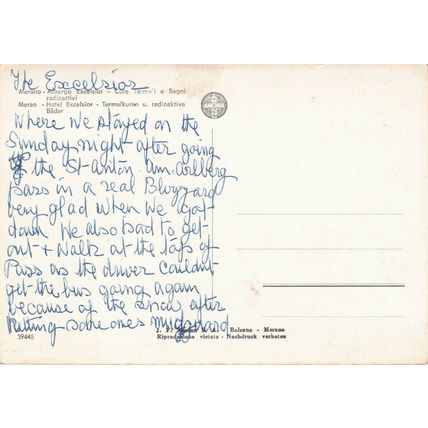 The Excelsior
Merano - Albergo Excelsior - Cure Termali e Bagni
radioattivi
Meran - Hotel Excelsior - Termalkuren u. radioaktive
Bäder
Where we stayed on the
Sunday night after going
up the St-Anton. am. Arlberg
pass in a real Blizzard
very glad when we got
down We also had to get
out & Walk at the top of
Pass as the driver couldn't
get the bus going again
because of the snow, after
putting someones
J. F. Amonn S. A. - Bolzano - Merano
39445
Riproduzione vietata - Nachdruck verboten